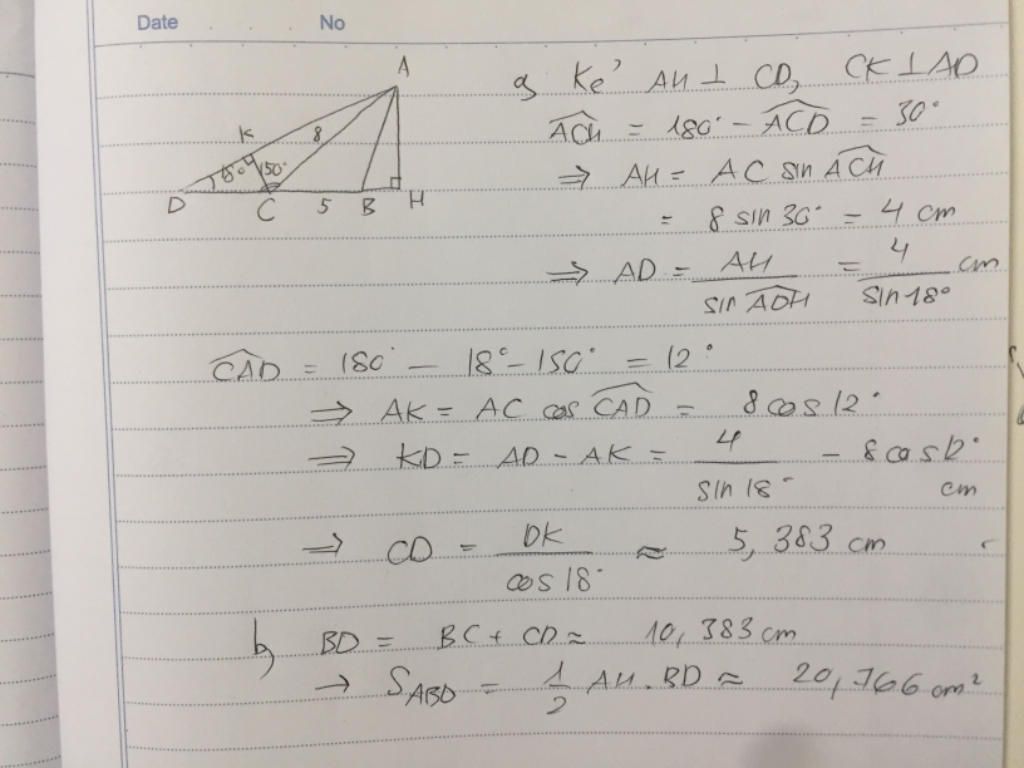 Date No
A
K 8
18° 150°
D C 5 B H
a, Kẻ AH ⊥ CD, CK ⊥ AD
ACH = 180° - ACD = 30°
⇒ AH = AC sin ACH
= 8 sin 30° = 4 cm
⇒ AD = AH / sin ADH = 4 / sin 18° cm
CAD = 180° - 18° - 150° = 12°
⇒ AK = AC cos CAD = 8 cos 12°
⇒ KD = AD - AK = 4 / sin 18° - 8 cos 12° cm
⇒ CD = DK / cos 18° ≈ 5,383 cm
b, BD = BC + CD ≈ 10,383 cm
→ S_ABD = 1/2 AH . BD ≈ 20,766 cm²